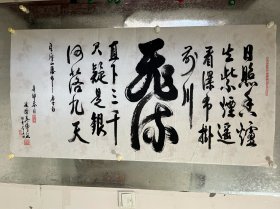 日照香爐
生紫煙遥
看瀑布掛
前川
飛流
直下三千
尺疑是銀
河落九天